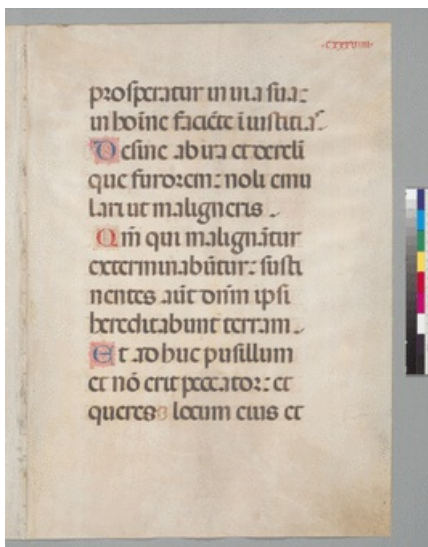 ·cxxxviiii·
prosperatur in uia sua:
in hoīne faciēte iiustitia᷒
Desine ab ira et dereli
que furorem: noli emu
lari ut maligneris.
Qm̄ qui malignātur
exterminabūtur: susti
nentes aūt dn̄m ipsi
hereditabunt terram.
Et adhuc pusillum
et nō erit peccator: et
queres locum eius et